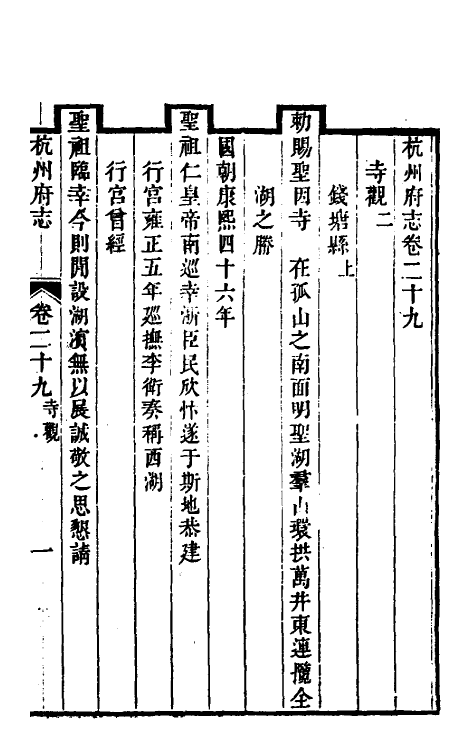 杭州府志卷二十九
寺觀二
錢塘縣上
勅賜聖因寺 在孤山之南面明聖湖羣山環拱萬井東連攬全
湖之勝
國朝康熙四十六年
聖祖仁皇帝南巡幸浙臣民欣忭遂于斯地恭建
行宮雍正五年廵撫李衛奏稱西湖
行宮曾經
聖祖臨幸今則閒設湖濱無以展誠敬之思懇請
杭州府志 卷二十九 寺觀 一